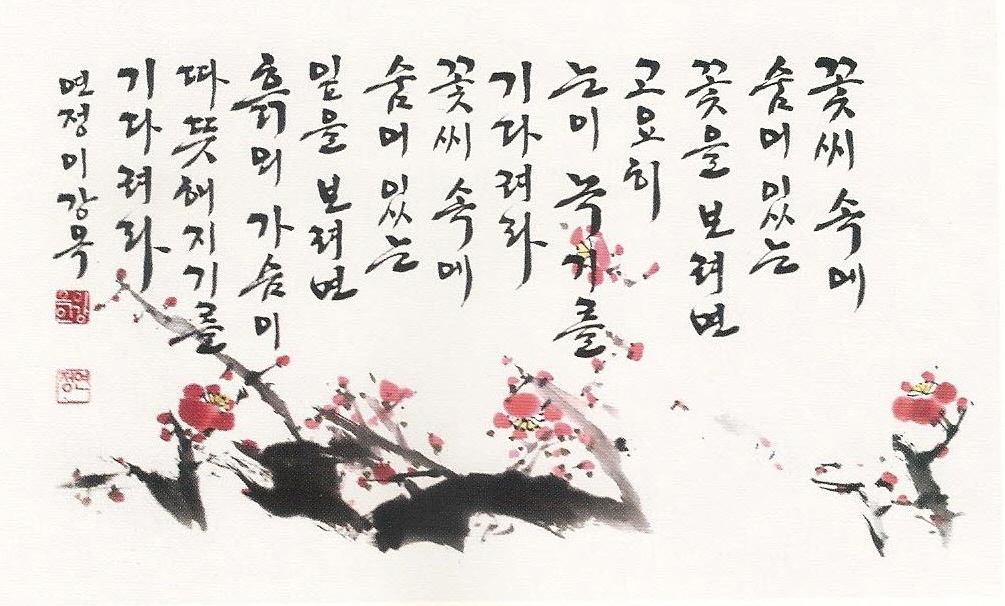 꽃씨 속에
숨어 있는
꽃을 보려면
고요히
눈이 녹기를
기다려라
꽃씨 속에
숨어 있는
잎을 보려면
흙의 가슴이
따뜻해지기를
기다려라
연정 이강옥
연정